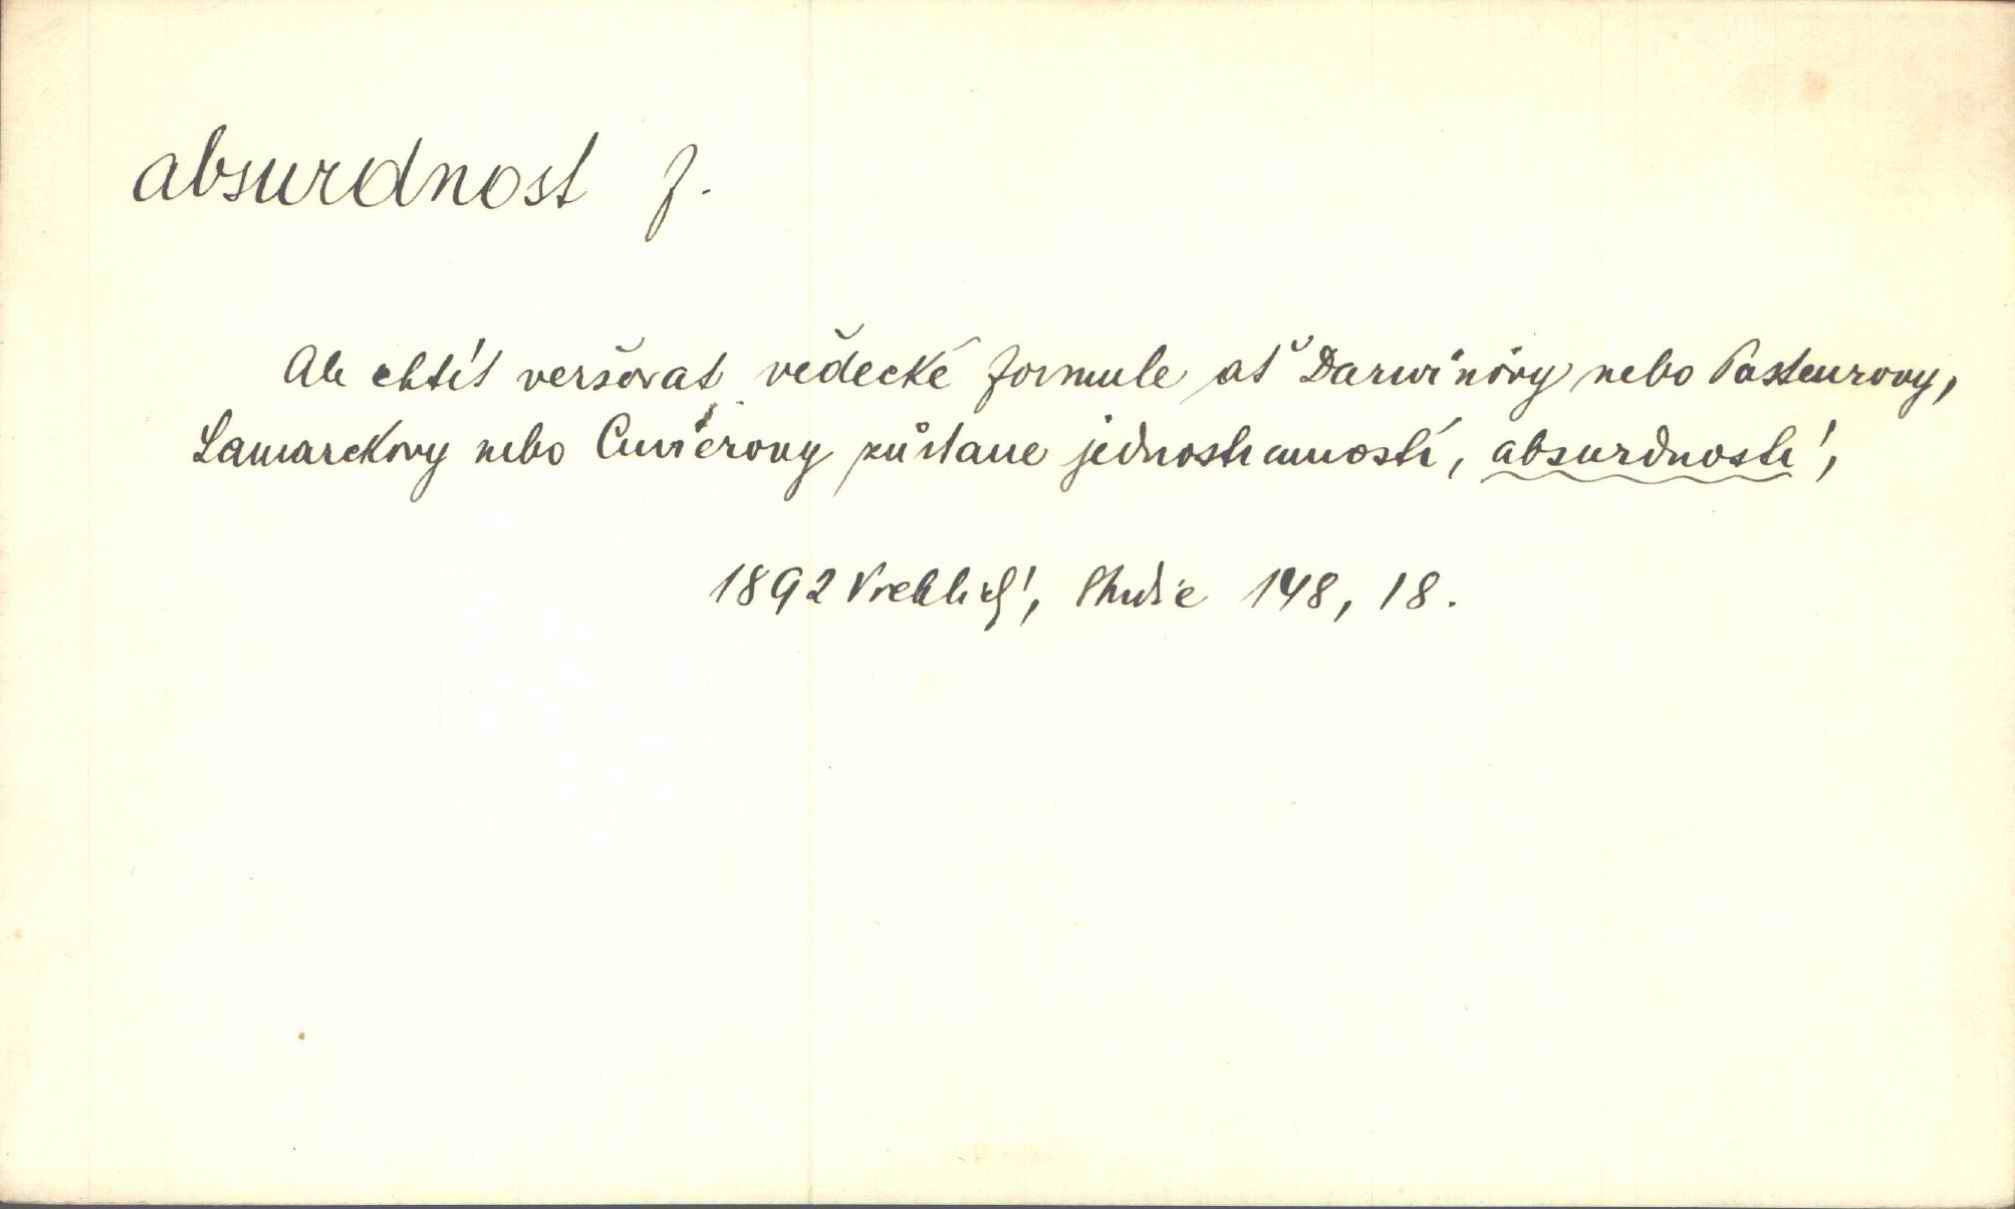 absurdnost f.
Ale chtít veršovat vědecké formule ať Darwinovy nebo Pasteurovy,
Lamarckovy nebo Cuvierovy zůstane jednostranností, absurdností,
1892 Vrchlický, Studie 148, 18.